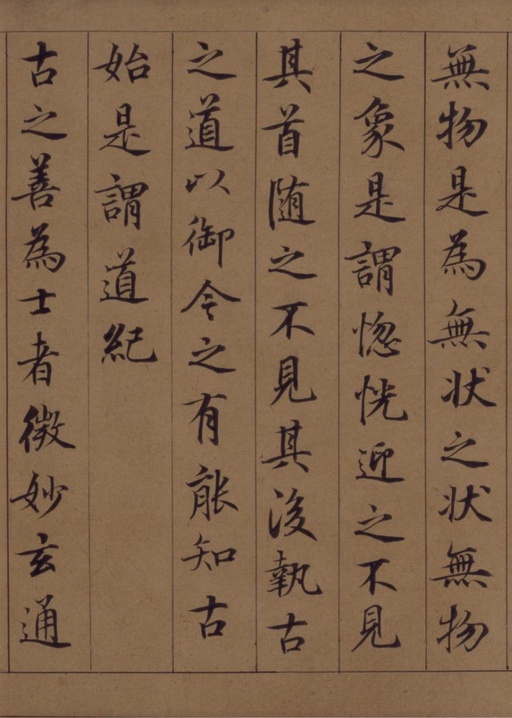 無物是為無状之状無物
之象是謂惚恍迎之不見
其首随之不見其後執古
之道以御今之有能知古
始是謂道紀
古之善為士者微妙玄通